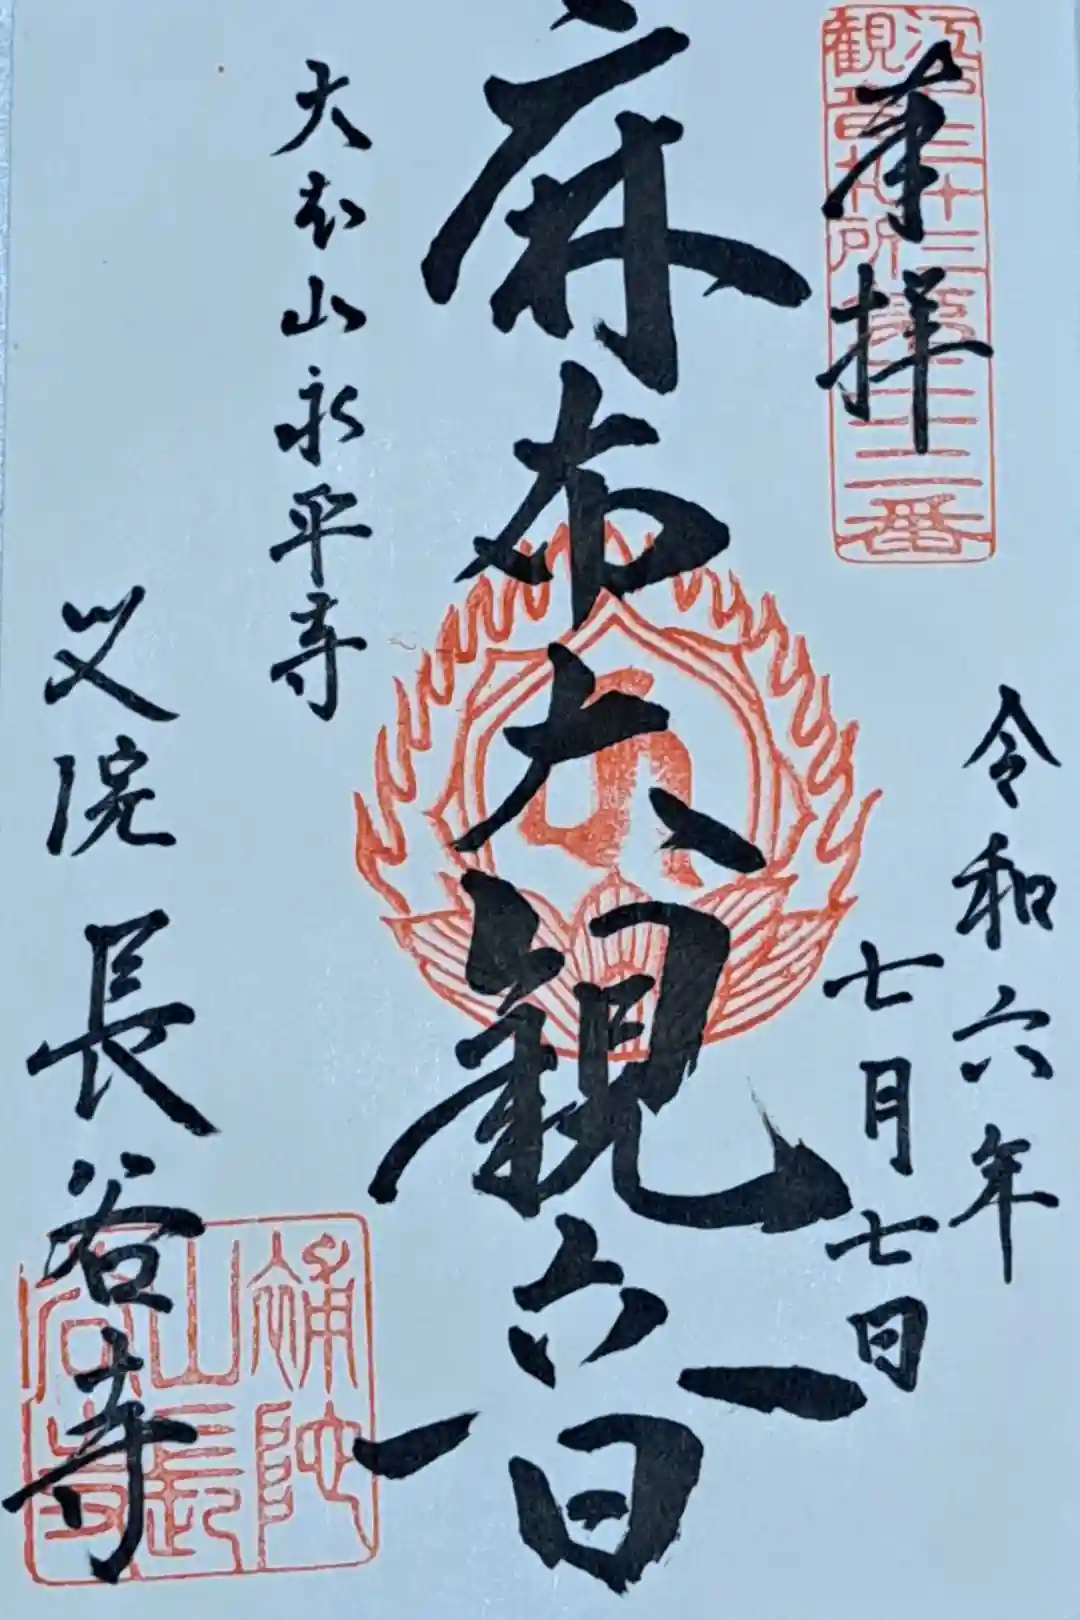 奉拝
江戸三十三
観音札所
第二十二番
令和六年
七月七日
麻布大観音
大本山永平寺
別院長谷寺
補陀
山長
谷寺